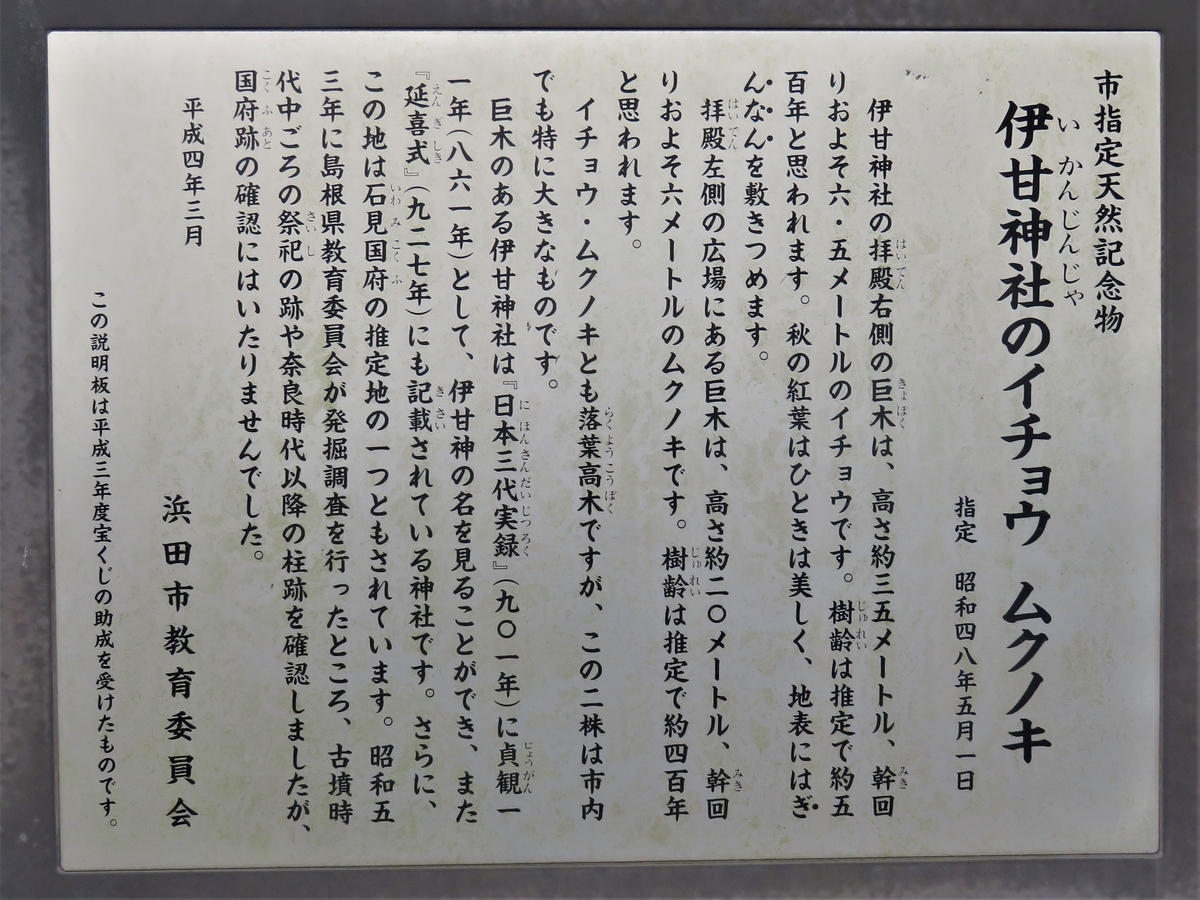 市指定天然記念物
伊甘神社のイチョウ ムクノキ
いかんじんじゃ
指定 昭和四八年五月一日
伊甘神社の拝殿右側の巨木は、高さ約三五メートル、幹回
はいでん きょぼく みき
りおよそ六・五メートルのイチョウです。樹齢は推定で約五
じゅれい
百年と思われます。秋の紅葉はひときは美しく、地表にはぎ
んなんを敷きつめます。
拝殿左側の広場にある巨木は、高さ約二〇メートル、幹回
はいでん みき
りおよそ六メートルのムクノキです。樹齢は推定で約四百年
じゅれい
と思われます。
イチョウ・ムクノキとも落葉高木ですが、この二株は市内
らくようこうぼく
でも特に大きなものです。
巨木のある伊甘神社は『日本三代実録』(九〇一年)に貞観一
にほんさんだいじつろく じょうがん
一年(八六一年)として、伊甘神の名を見ることができ、また
『延喜式』(九二七年)にも記載されている神社です。さらに、
えんぎしき きさい
この地は石見国府の推定地の一つともされています。昭和五
いわみこくふ
三年に島根県教育委員会が発掘調査を行ったところ、古墳時
代中ごろの祭祀の跡や奈良時代以降の柱跡を確認しましたが、
さいし
国府跡の確認にはいたりませんでした。
こくふあと
平成四年三月
浜田市教育委員会
この説明板は平成三年度宝くじの助成を受けたものです。